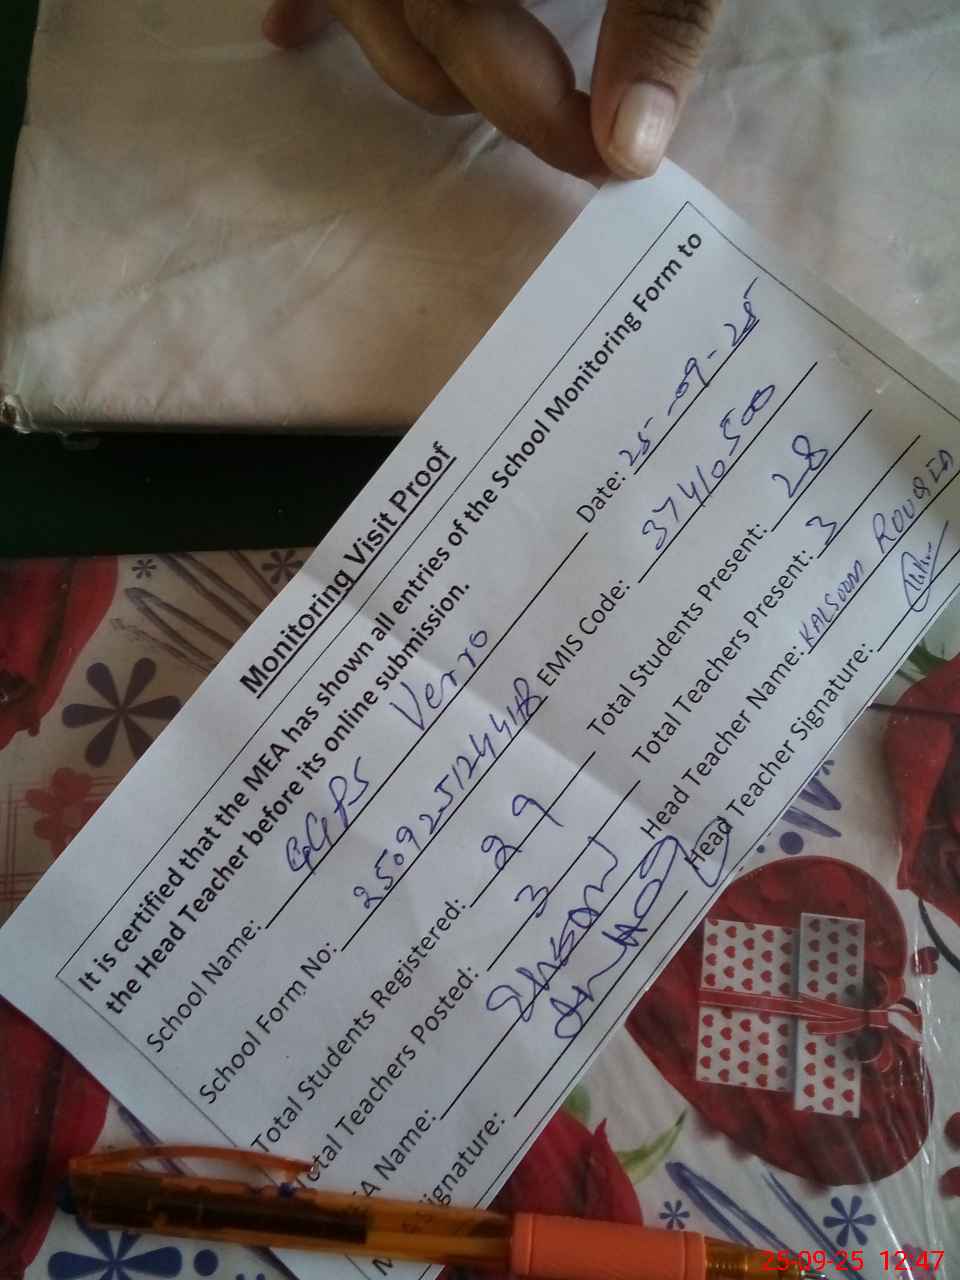 Monitoring Visit Proof
It is certified that the MEA has shown all entries of the School Monitoring Form to
the Head Teacher before its online submission.
School Name: GGPS Verro Date: 25-09-25
School Form No: EMIS Code: 37410500
Total Students Registered: 29 Total Students Present: 28
Total Teachers Posted: 3 Total Teachers Present: 3
A Name: Head Teacher Name: KALSOOM
ignature: Head Teacher Signature:
25-09-25 12:47